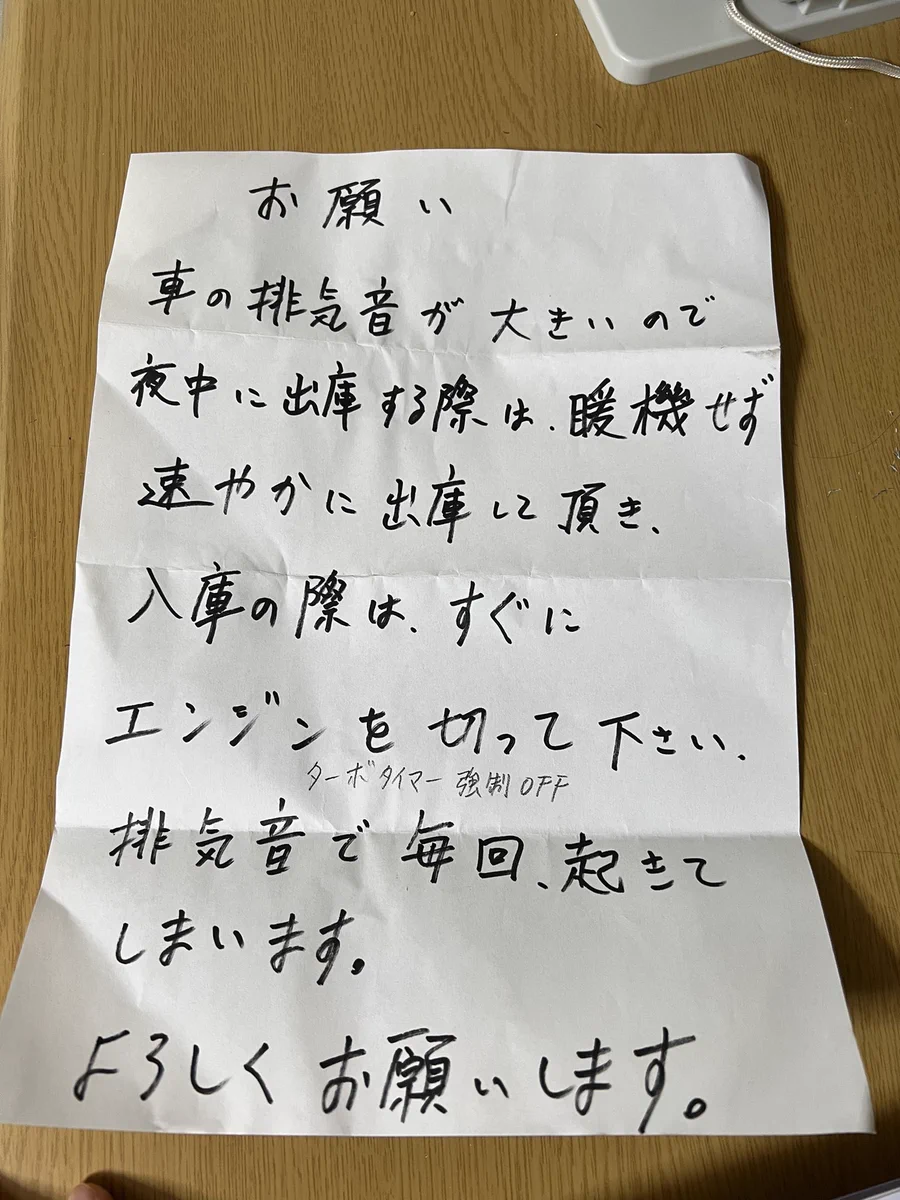 お願い
車の排気音が大きいので
夜中に出庫する際は、暖機せず
速やかに出庫して頂き、
入庫の際は、すぐに
エンジンを切って下さい、
ターボタイマー強制OFF
排気音で毎回、起きて
しまいます。
よろしくお願いします。